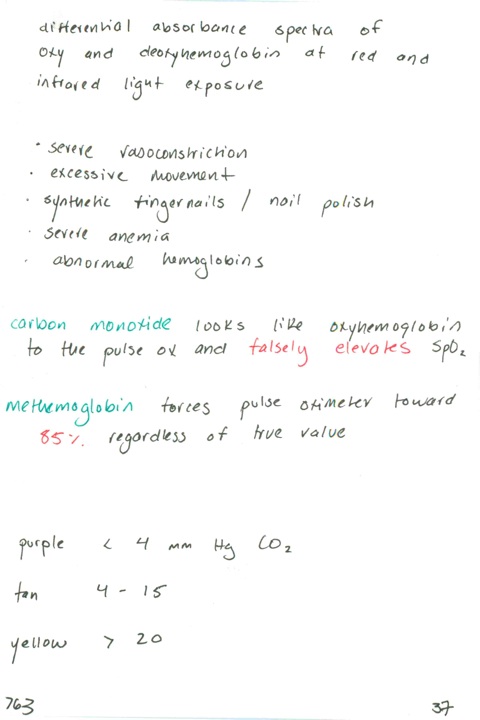 differential absorbance spectra of
oxy and deoxyhemoglobin at red and
infrared light exposure
· severe vasoconstriction
· excessive movement
· synthetic fingernails / nail polish
· severe anemia
· abnormal hemoglobins
carbon monoxide looks like oxyhemoglobin
to the pulse ox and falsely elevates SpO₂
methemoglobin forces pulse oximeter toward
85% regardless of true value
purple < 4 mm Hg CO₂
tan 4 - 15
yellow > 20
763 37